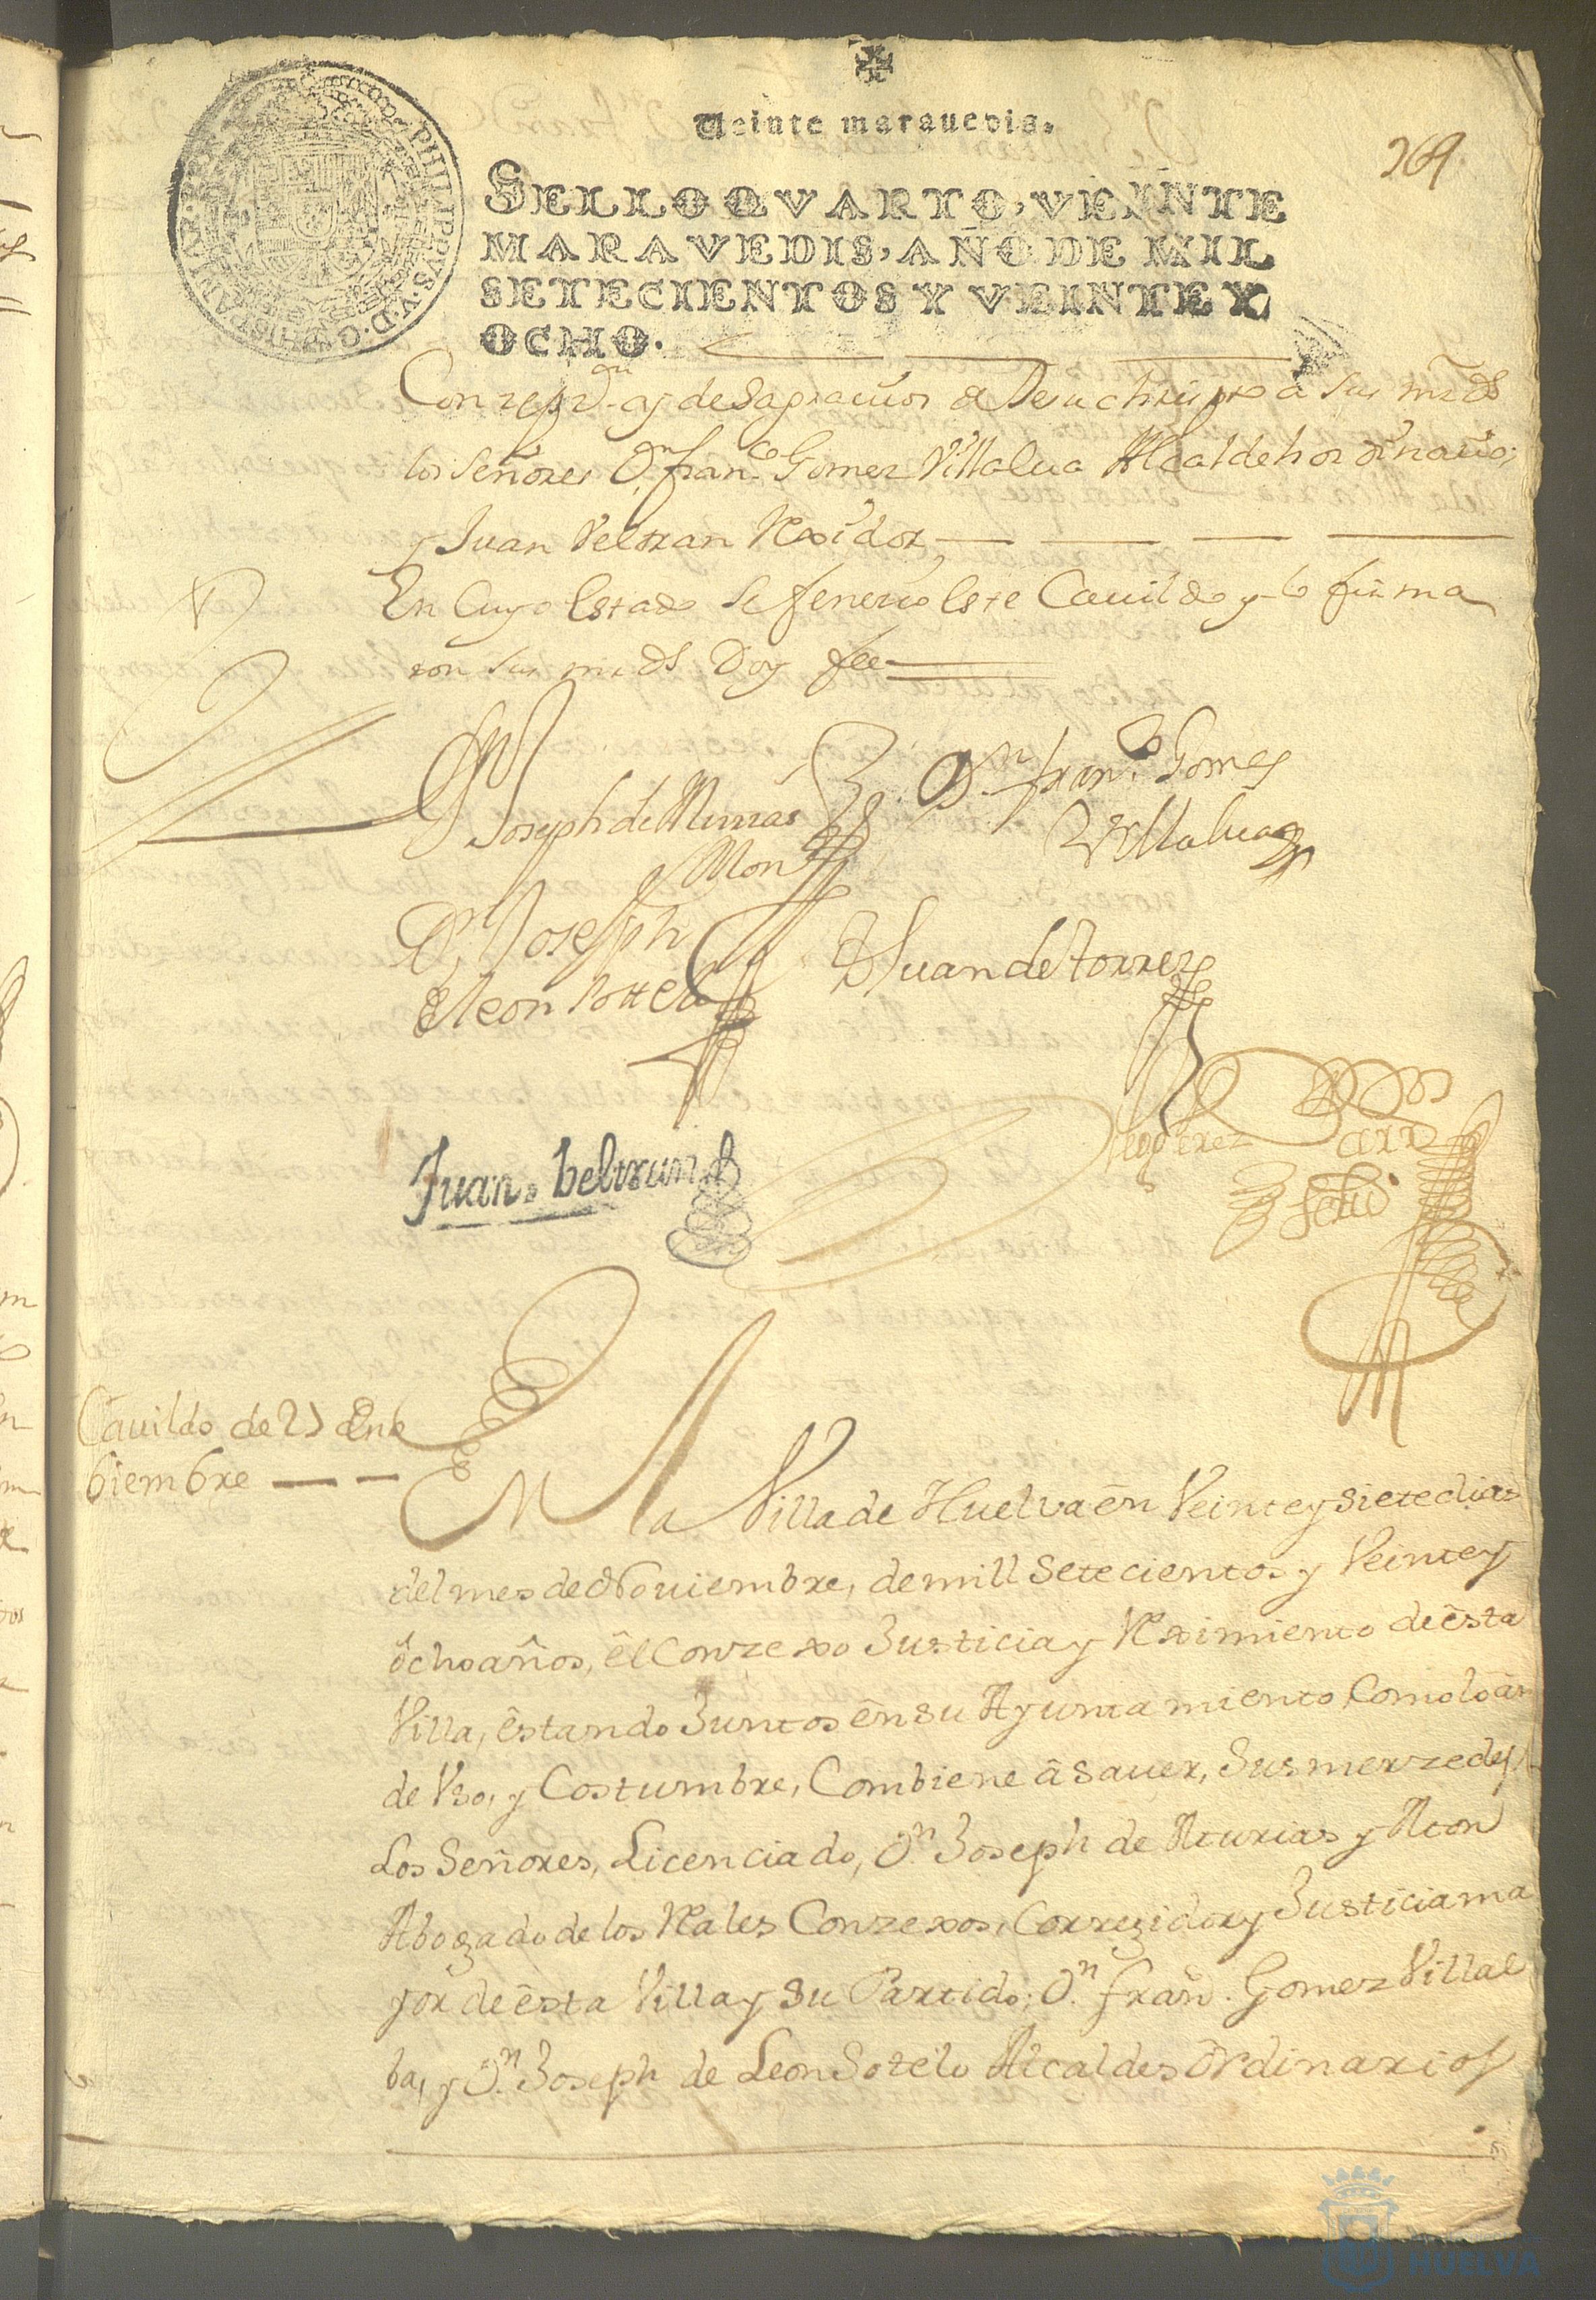 Veinte marauedis.
269
SELLO QVARTO, VEINTE
MARAVEDIS, AÑO DE MIL
SETECIENTOS Y VEINTE Y
OCHO.
PHILIPPVS V D G HISPANIAR
los Señores Dn. Franco. Gomez Villalua Alcalde hordinario,
y Juan Veltran Rexidor,
En Cuyo Estado se fenecio este Cauildo y lo firma
ron sus mrds Doy fee
Joseph de
Dn. Franco. Gomes
Villalua
D. Joseph
de Leon Sotelo
Juan de torres
Juan. beltran
Cauildo de 27 de No
biembre
En la Villa de Huelva ên Veinte y siete dias
del mes de Nouiembre, de mill Setecientos y Veinte y
ôcho años, êl Conzexo Justicia y Reximiento de êsta
Villa, êstando Juntos ên su Ayuntamiento, Como lo an
de Vso, y Costumbre, Combiene â Sauer, Sus merzedes
Los Señores, Licenciado, Dn. Joseph de Aturias y Mon
Abogado de los Rales Conzexos, Correxidor y Justicia ma
yor de êsta Villa y su Partido; Dn. Fran. Gomez Villal
ba, y Dn. Joseph de Leon Sotelo Alcaldes Ordinarios
HUELVA